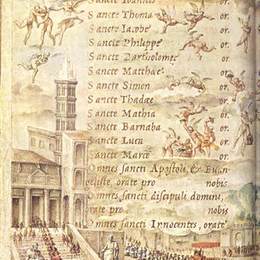 Sancte Ioannes or.
Sancte Thoma or.
Sancte Iacobe or.
Sancte Philippe or.
Sancte Bartholomee or.
Sancte Matthæe or.
Sancte Simon or.
Sancte Thadæe or.
Sancte Mathia or.
Sancte Barnaba or.
Sancte Luca or.
Sancte Marce or.
Omnes sancti Apostoli, & Euan
gelistæ, orate pro nobis
Omnes sancti discipuli domini,
orate pro nobis.
Omnes sancti Innocentes, orate